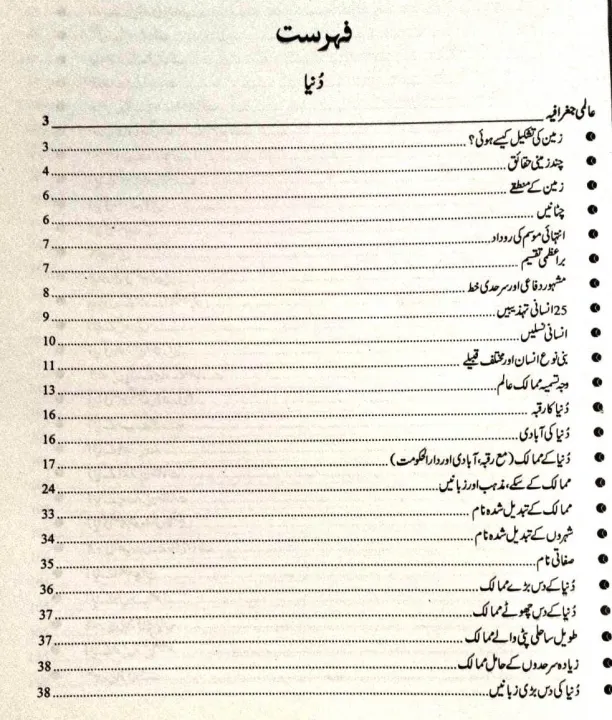 فہرست
دُنیا
عالمی جغرافیہ 3
زمین کی تشکیل کیسے ہوئی؟ 3
چند زمینی حقائق 4
زمین کے منطقے 6
چٹانیں 6
انتہائی موسم کی روداد 7
براعظمی تقسیم 7
مشہور دفاعی اور سرحدی خط 8
25 انسانی تہذیبیں 9
انسانی نسلیں 10
بنی نوع انسان اور مختلف قبیلے 11
وجہ تسمیہ ممالک عالم 13
دُنیا کا رقبہ 16
دُنیا کی آبادی 16
دُنیا کے ممالک (مع رقبہ، آبادی اور دارالحکومت) 17
ممالک کے سکے، مذہب اور زبانیں 24
ممالک کے تبدیل شدہ نام 33
شہروں کے تبدیل شدہ نام 34
صفاتی نام 35
دُنیا کے دس بڑے ممالک 36
دُنیا کے دس چھوٹے ممالک 37
طویل ساحلی پٹی والے ممالک 37
زیادہ سرحدوں کے حامل ممالک 38
دُنیا کی دس بڑی زبانیں 38